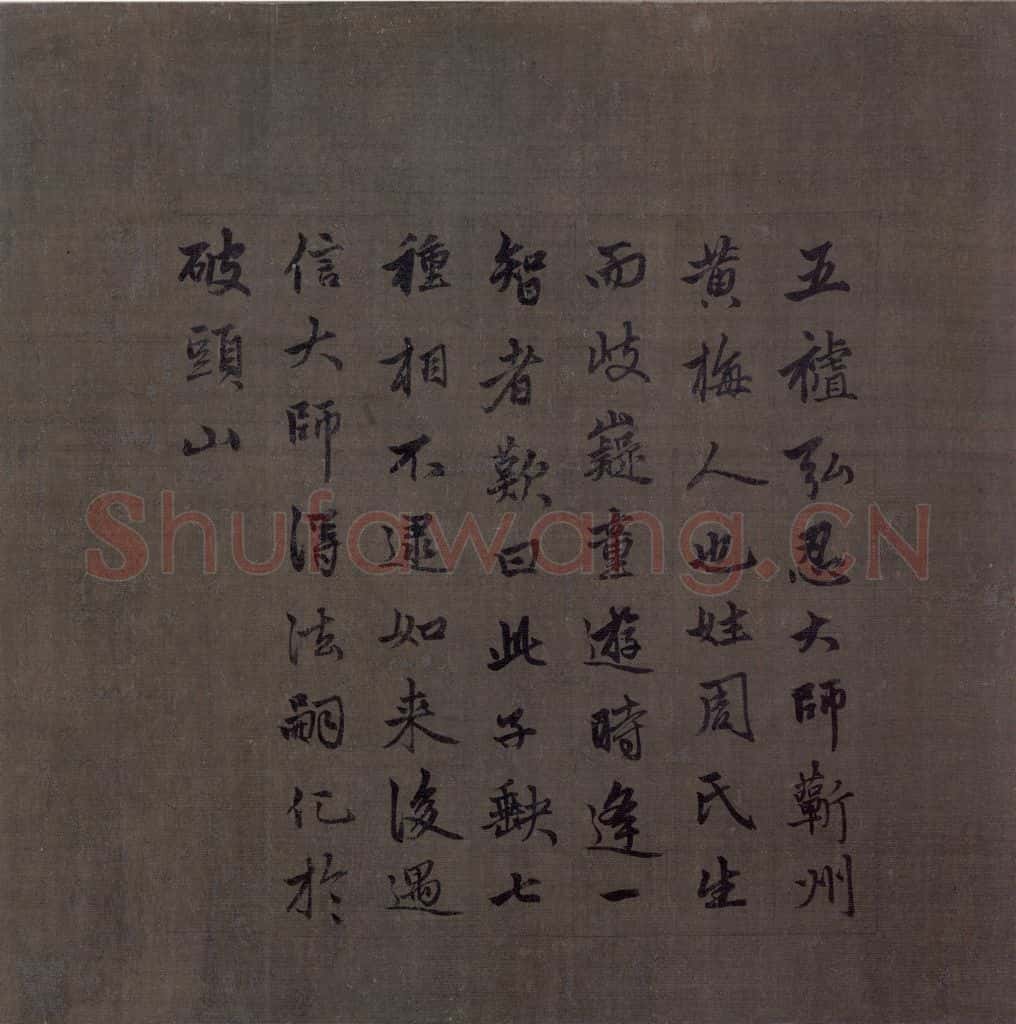 五祖弘忍大師蘄州
黄梅人也姓周氏生
而岐嶷童遊時逢一
智者歎曰此子缺七
種相不逮如来後遇
信大師得法嗣化於
破頭山
Shufawang.CN